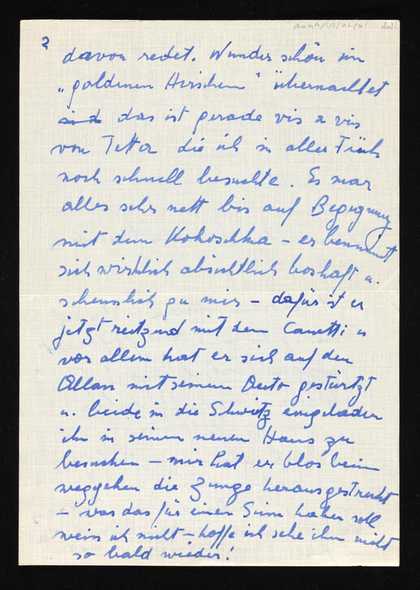 2
davon redet. Wunderschön im
"goldenen Hirschen" übernachtet
das ist gerade vis a vis
von Tetta die ich in aller Früh
noch schnell besuchte. Es war
alles sehr nett bis auf Begegnung
mit dem Kokoschka – er benimmt
sich wirklich absichtlich boshaft u.
scheusslich zu mir – dafür ist er
jetzt reitzend mit dem Canetti u
vor allem hat er sich auf den
Allan mit seinem Auto gestürtzt
u. beide in die Schweitz eingeladen
ihn in seinem neuen Haus zu
besuchen – mir hat er blos beim
weggehen die Zunge herausgestreckt
– was das für einen Sinn haben soll
weiss ich nicht – hoffe ich sehe ihn nicht
so bald wieder!